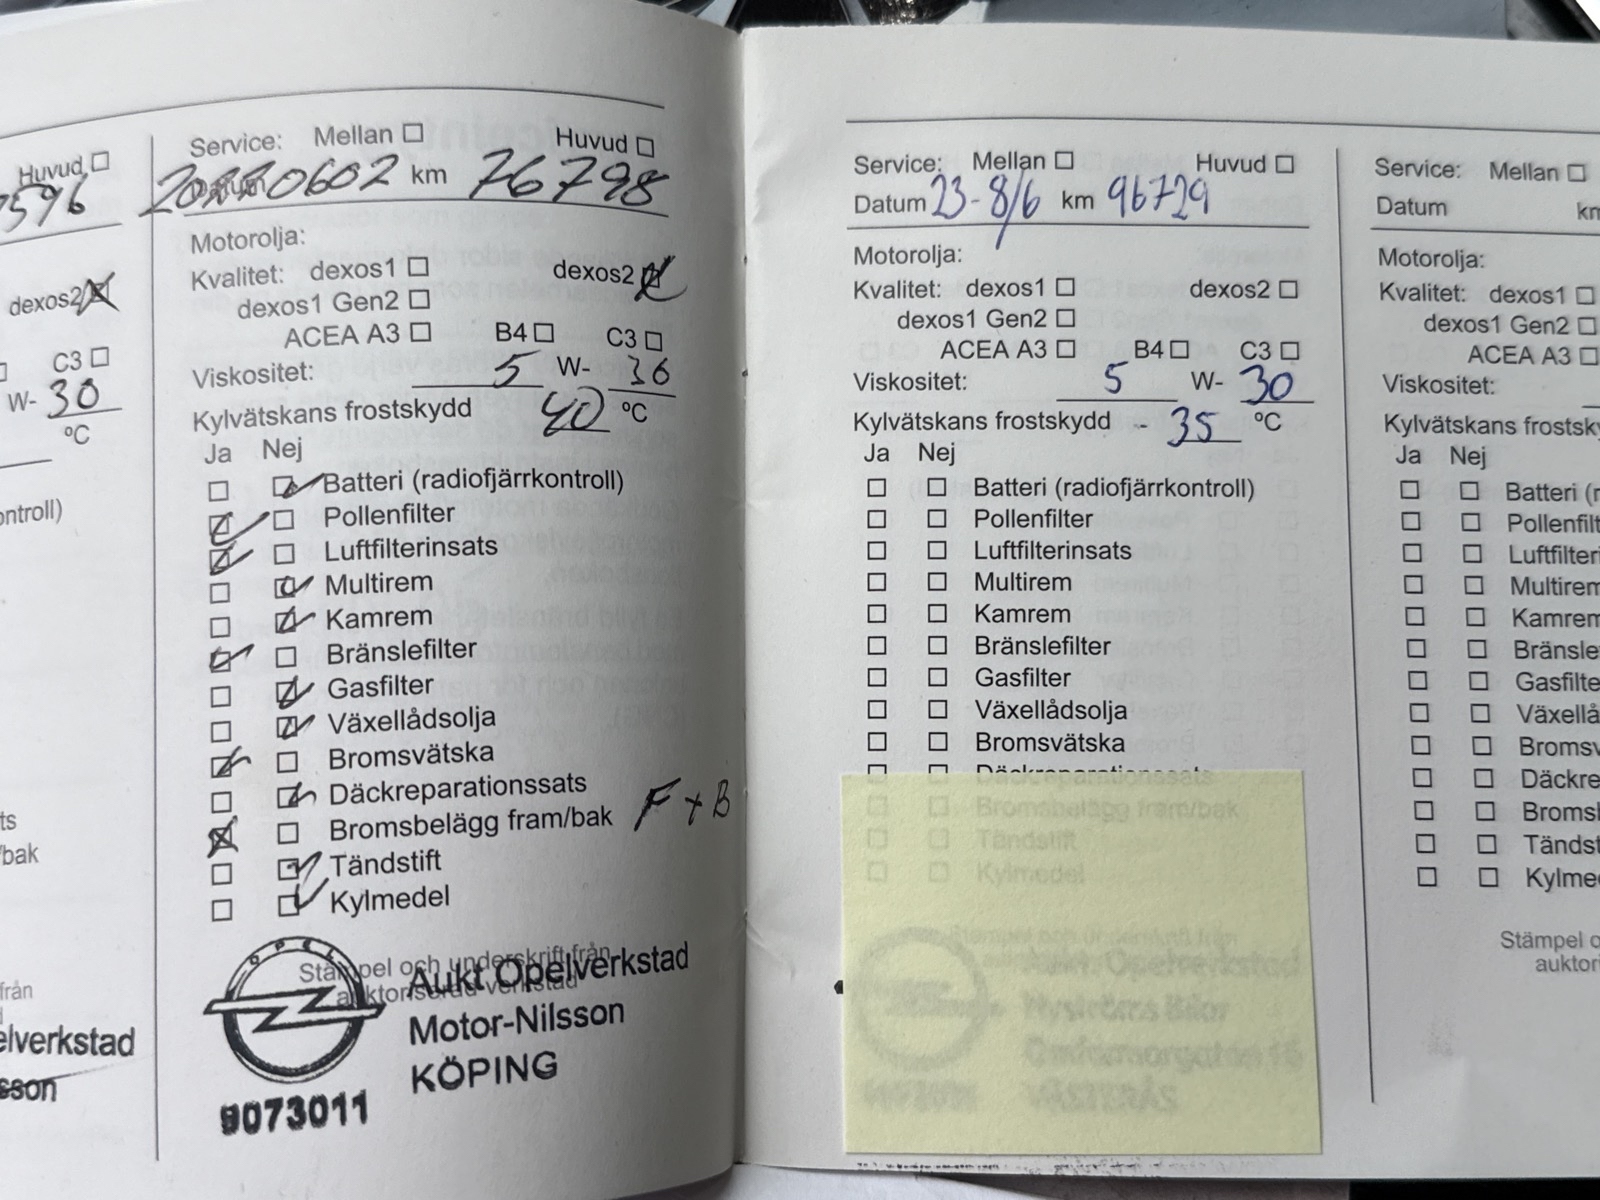 Huvud
596
dexos2
C3
W- 30
ºC
ontroll)
ts
/bak
från
elverkstad
sson
Service: Mellan Huvud
0602 km 76798
Motorolja:
Kvalitet: dexos1 dexos2
dexos1 Gen2
ACEA A3 B4 C3
Viskositet: 5 W- 30
Kylvätskans frostskydd 40 ºC
Ja Nej
Batteri (radiofjärrkontroll)
Pollenfilter
Luftfilterinsats
Multirem
Kamrem
Bränslefilter
Gasfilter
Växellådsolja
Bromsvätska
Däckreparationssats
Bromsbelägg fram/bak F + B
Tändstift
Kylmedel
Stämpel och underskrift från
auktoriserad verkstad
OPEL
Aukt Opelverkstad
Motor-Nilsson
KÖPING
9073011
Service: Mellan Huvud
Datum 23-8/6 km 96729
Motorolja:
Kvalitet: dexos1 dexos2
dexos1 Gen2
ACEA A3 B4 C3
Viskositet: 5 W- 30
Kylvätskans frostskydd - 35 ºC
Ja Nej
Batteri (radiofjärrkontroll)
Pollenfilter
Luftfilterinsats
Multirem
Kamrem
Bränslefilter
Gasfilter
Växellådsolja
Bromsvätska
Däckreparationssats
Bromsbelägg fram/bak
Tändstift
Kylmedel
Stämpel och underskrift från
Aukt. Opelverkstad
Bilar
VÄSTERÅS
Service: Mellan
Datum km
Motorolja:
Kvalitet: dexos1
dexos1 Gen2
ACEA A3
Viskositet:
Kylvätskans frostsky
Ja Nej
Batteri (r
Pollenfilt
Luftfilteri
Multirem
Kamrem
Bränsle
Gasfilte
Växellå
Bromsv
Däckre
Bromsl
Tändst
Kylme
Stämpel o
auktori